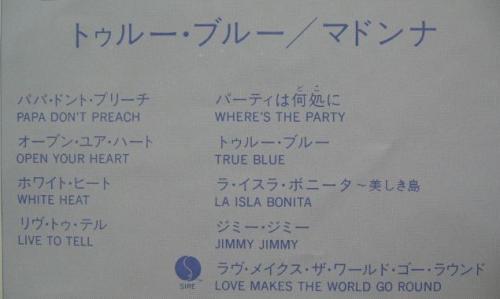 トゥルー・ブルー／マドンナ
パパ・ドント・プリーチ
PAPA DON'T PREACH
オープン・ユア・ハート
OPEN YOUR HEART
ホワイト・ヒート
WHITE HEAT
リヴ・トゥ・テル
LIVE TO TELL
パーティは何処に
どこ
WHERE'S THE PARTY
トゥルー・ブルー
TRUE BLUE
ラ・イスラ・ボニータ～美しき島
LA ISLA BONITA
ジミー・ジミー
JIMMY JIMMY
ラヴ・メイクス・ザ・ワールド・ゴー・ラウンド
LOVE MAKES THE WORLD GO ROUND
SIRE